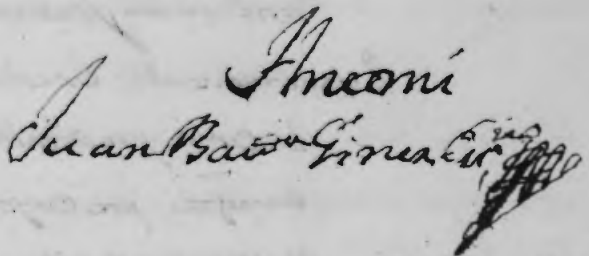 Ante mi
Juan Baut.ª Gines Ess.no